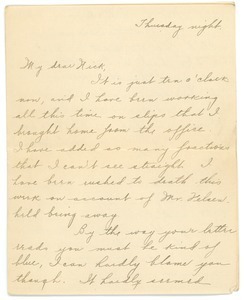 Thursday night.
My dear Kick,
It is just ten o'clock
now, and I have been working
all this time on slips that I
brought home from the office.
I have added so many fractions
that I can't see straight. I
have been rushed to death this
week on account of Mr.
being away.
By the way your letter
reads you must be kind of
blue, I can hardly blame you
though. It hardly seemed